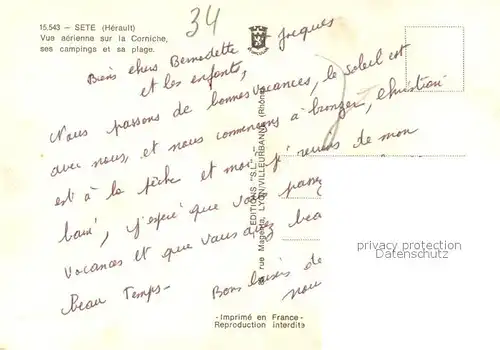 15.543 — SETE (Hérault)
Vue aérienne sur la Corniche,
ses campings et sa plage.
34
Biens chers Bernadette Jacques
et les enfants,
Nous passons de bonnes vacances, le soleil est
avec nous, et nous commençons à bronzer, Christian
est à la pêche et moi j'reviens de mon
bain, j'espère que vous passez
vacances et que vous avez beau
beau Temps- Bons baisers de
nou
EDITIONS "S.L."
rue Magenta, LYON/VILLEURBANNE (Rhône)
privacy protection
Datenschutz
-Imprimé en France-
Reproduction interdite